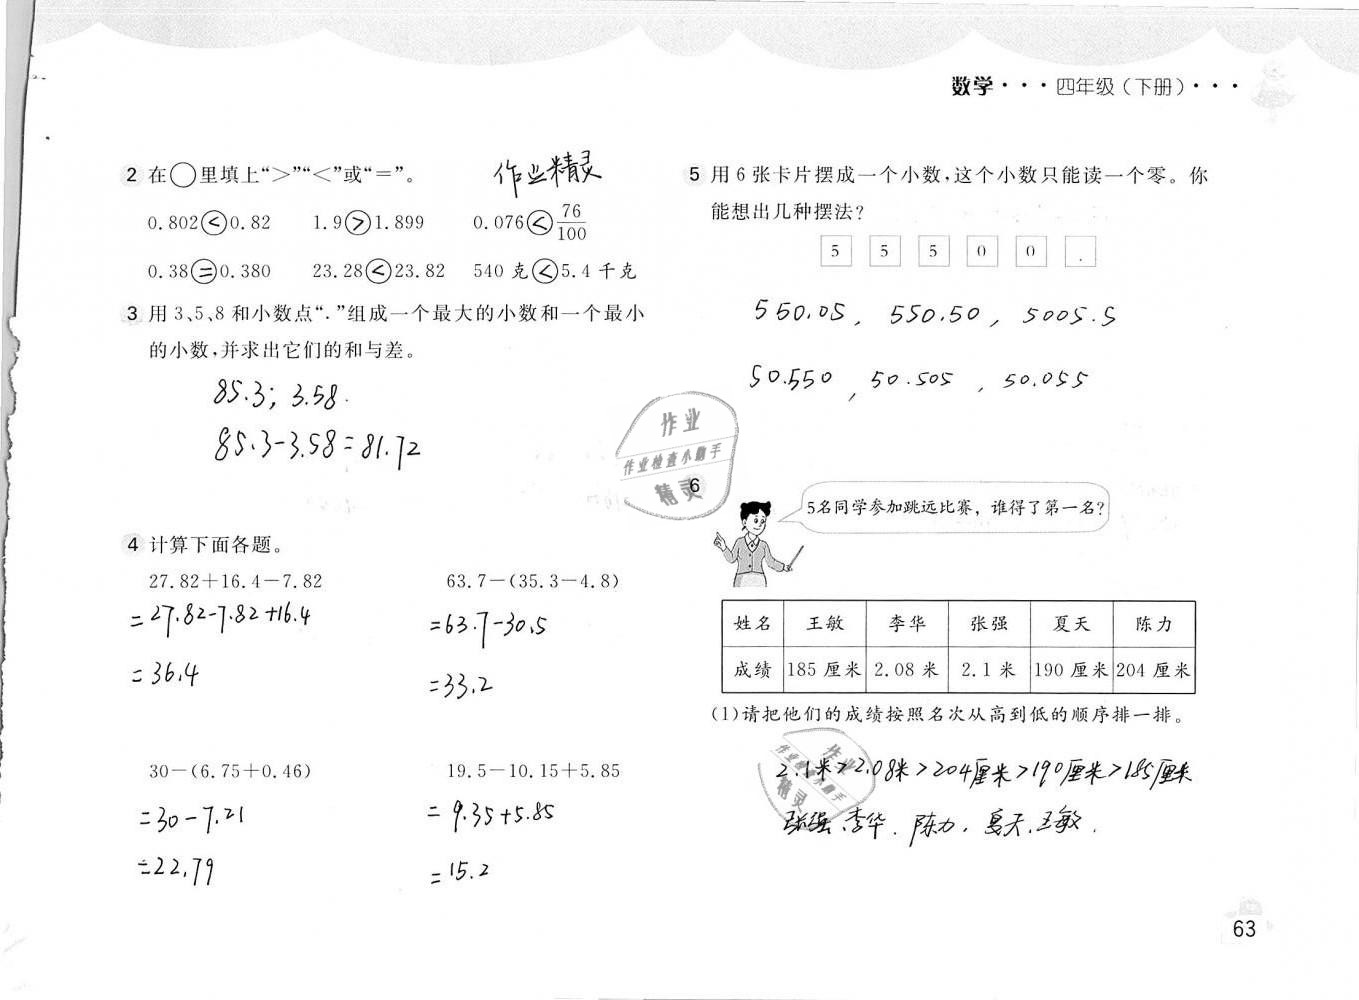 数学···四年级（下册）···
2 在○里填上“>”“<”或“=”。
作业精灵
0.802<0.82 1.9>1.899 0.076<76/100
0.38=0.380 23.28<23.82 540克<5.4千克
3 用3、5、8和小数点“.”组成一个最大的小数和一个最小
的小数,并求出它们的和与差。
85.3; 3.58.
85.3-3.58=81.72
4 计算下面各题。
27.82+16.4-7.82 63.7-(35.3-4.8)
=27.82-7.82+16.4 =63.7-30.5
=36.4 =33.2
30-(6.75+0.46) 19.5-10.15+5.85
=30-7.21 =9.35+5.85
=22.79 =15.2
5 用6张卡片摆成一个小数,这个小数只能读一个零。你
能想出几种摆法?
5 5 5 0 0 .
550.05, 550.50, 5005.5
50.550, 50.505, 50.055
作业
作业检查小助手
精灵
6
5名同学参加跳远比赛，谁得了第一名?
姓名 王敏 李华 张强 夏天 陈力
成绩 185厘米 2.08米 2.1米 190厘米 204厘米
(1)请把他们的成绩按照名次从高到低的顺序排一排。
作业
作业检查小助手
精灵
2.1米>2.08米>204厘米>190厘米>185厘米
张强.李华.陈力.夏天.王敏.
63